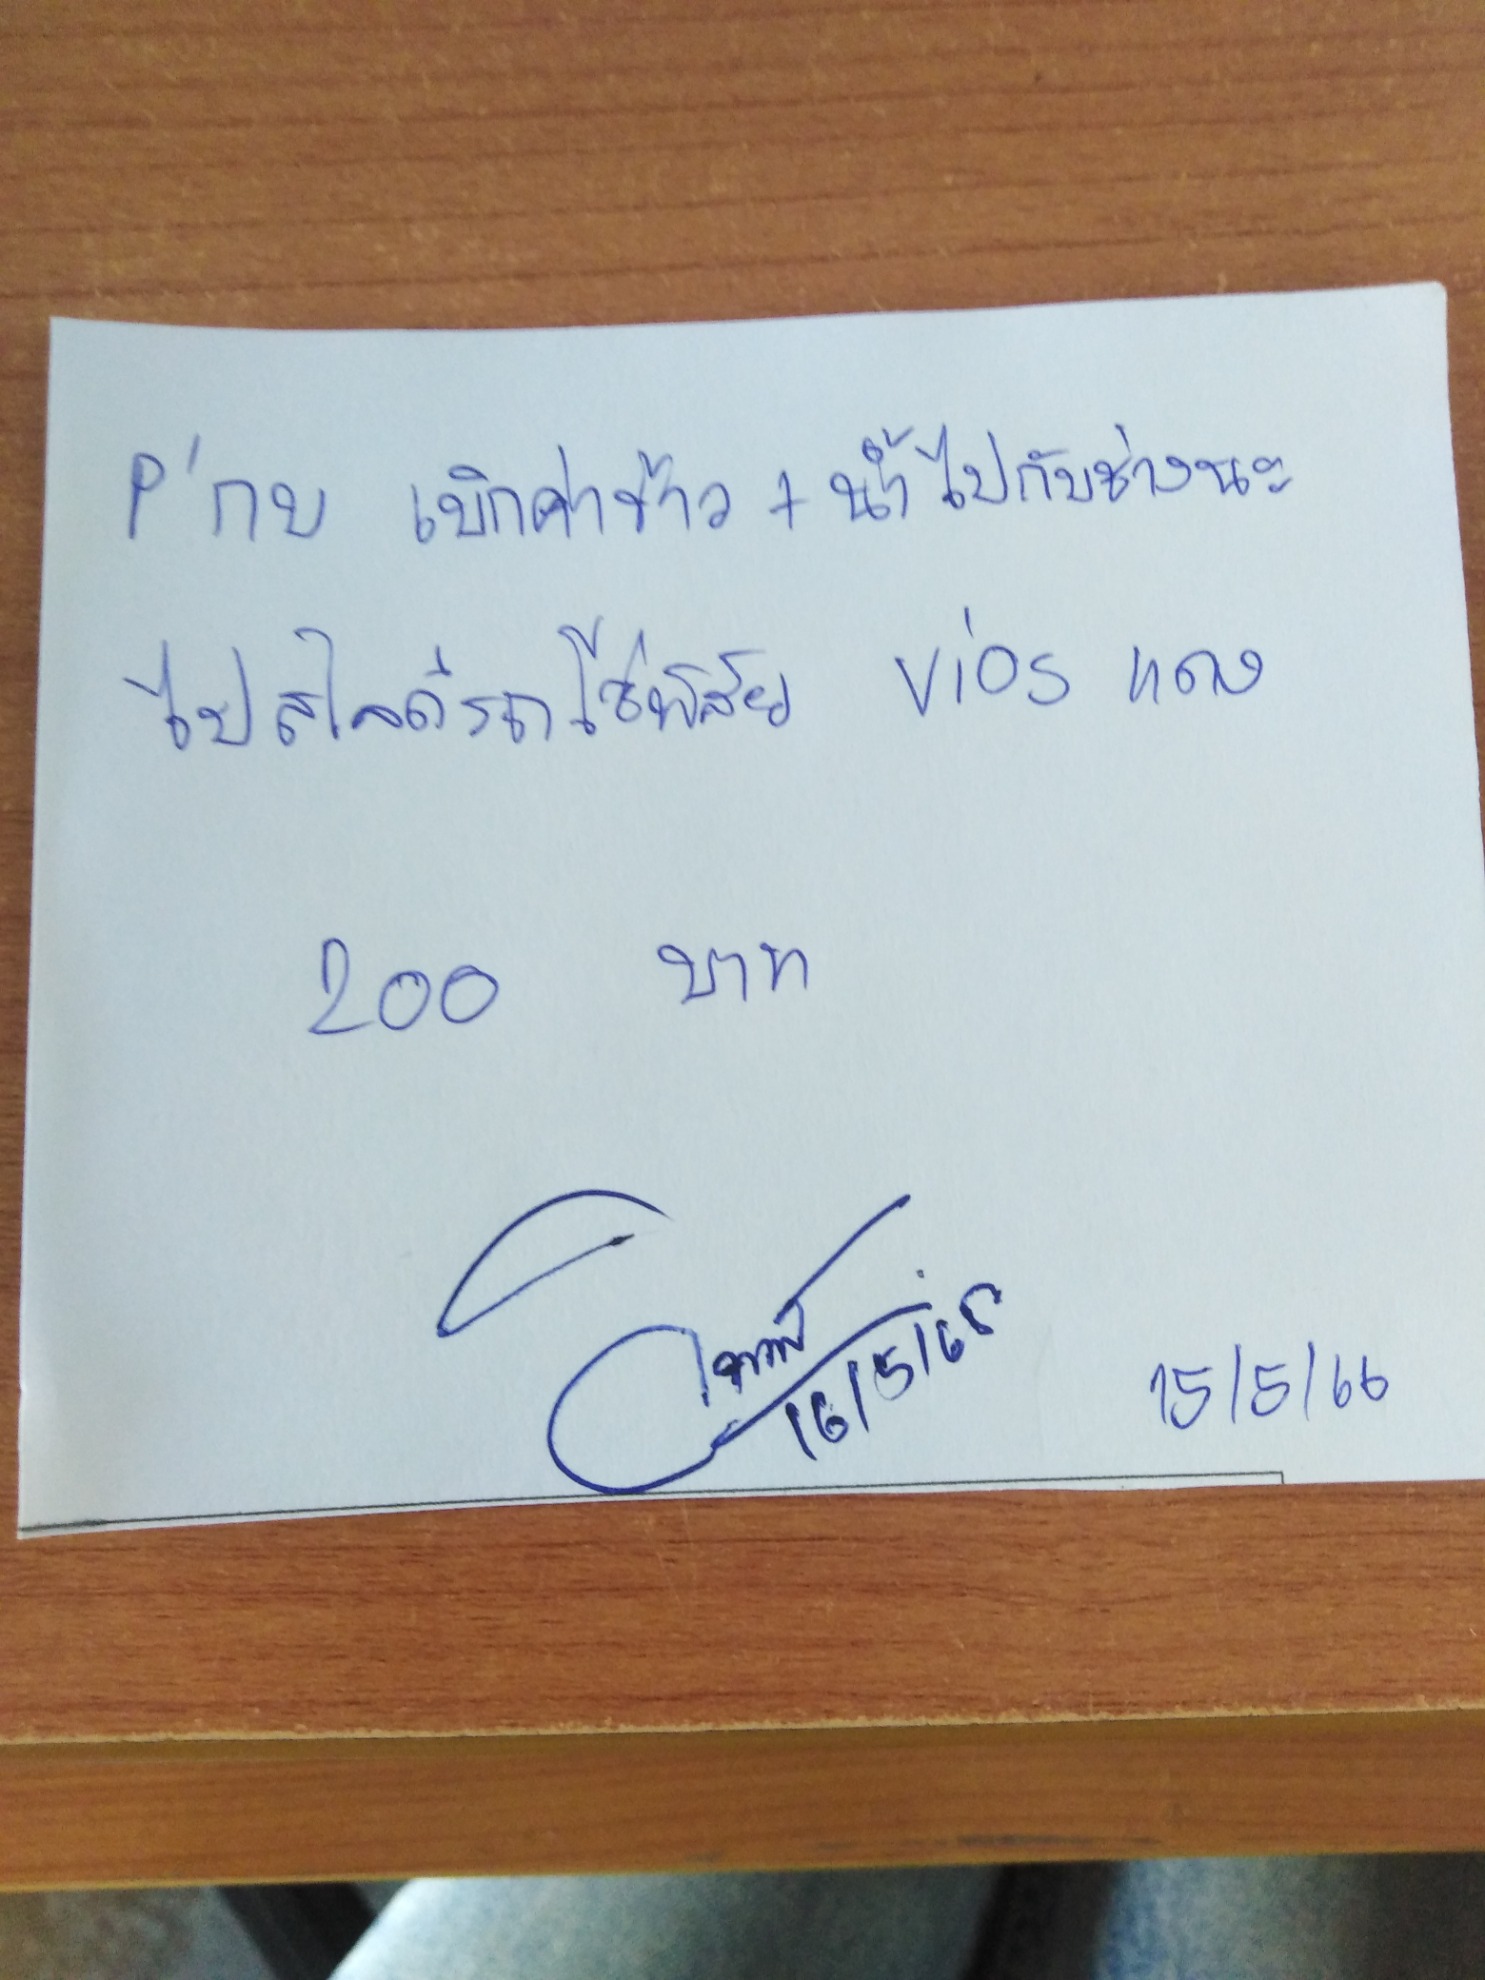 P'กบ เบิกค่าข้าว + น้ำไปกับช่างนะ
ไปสไลด์รถโซ่พิสัย Vios แดง
200 บาท
16/5/65
15/5/66